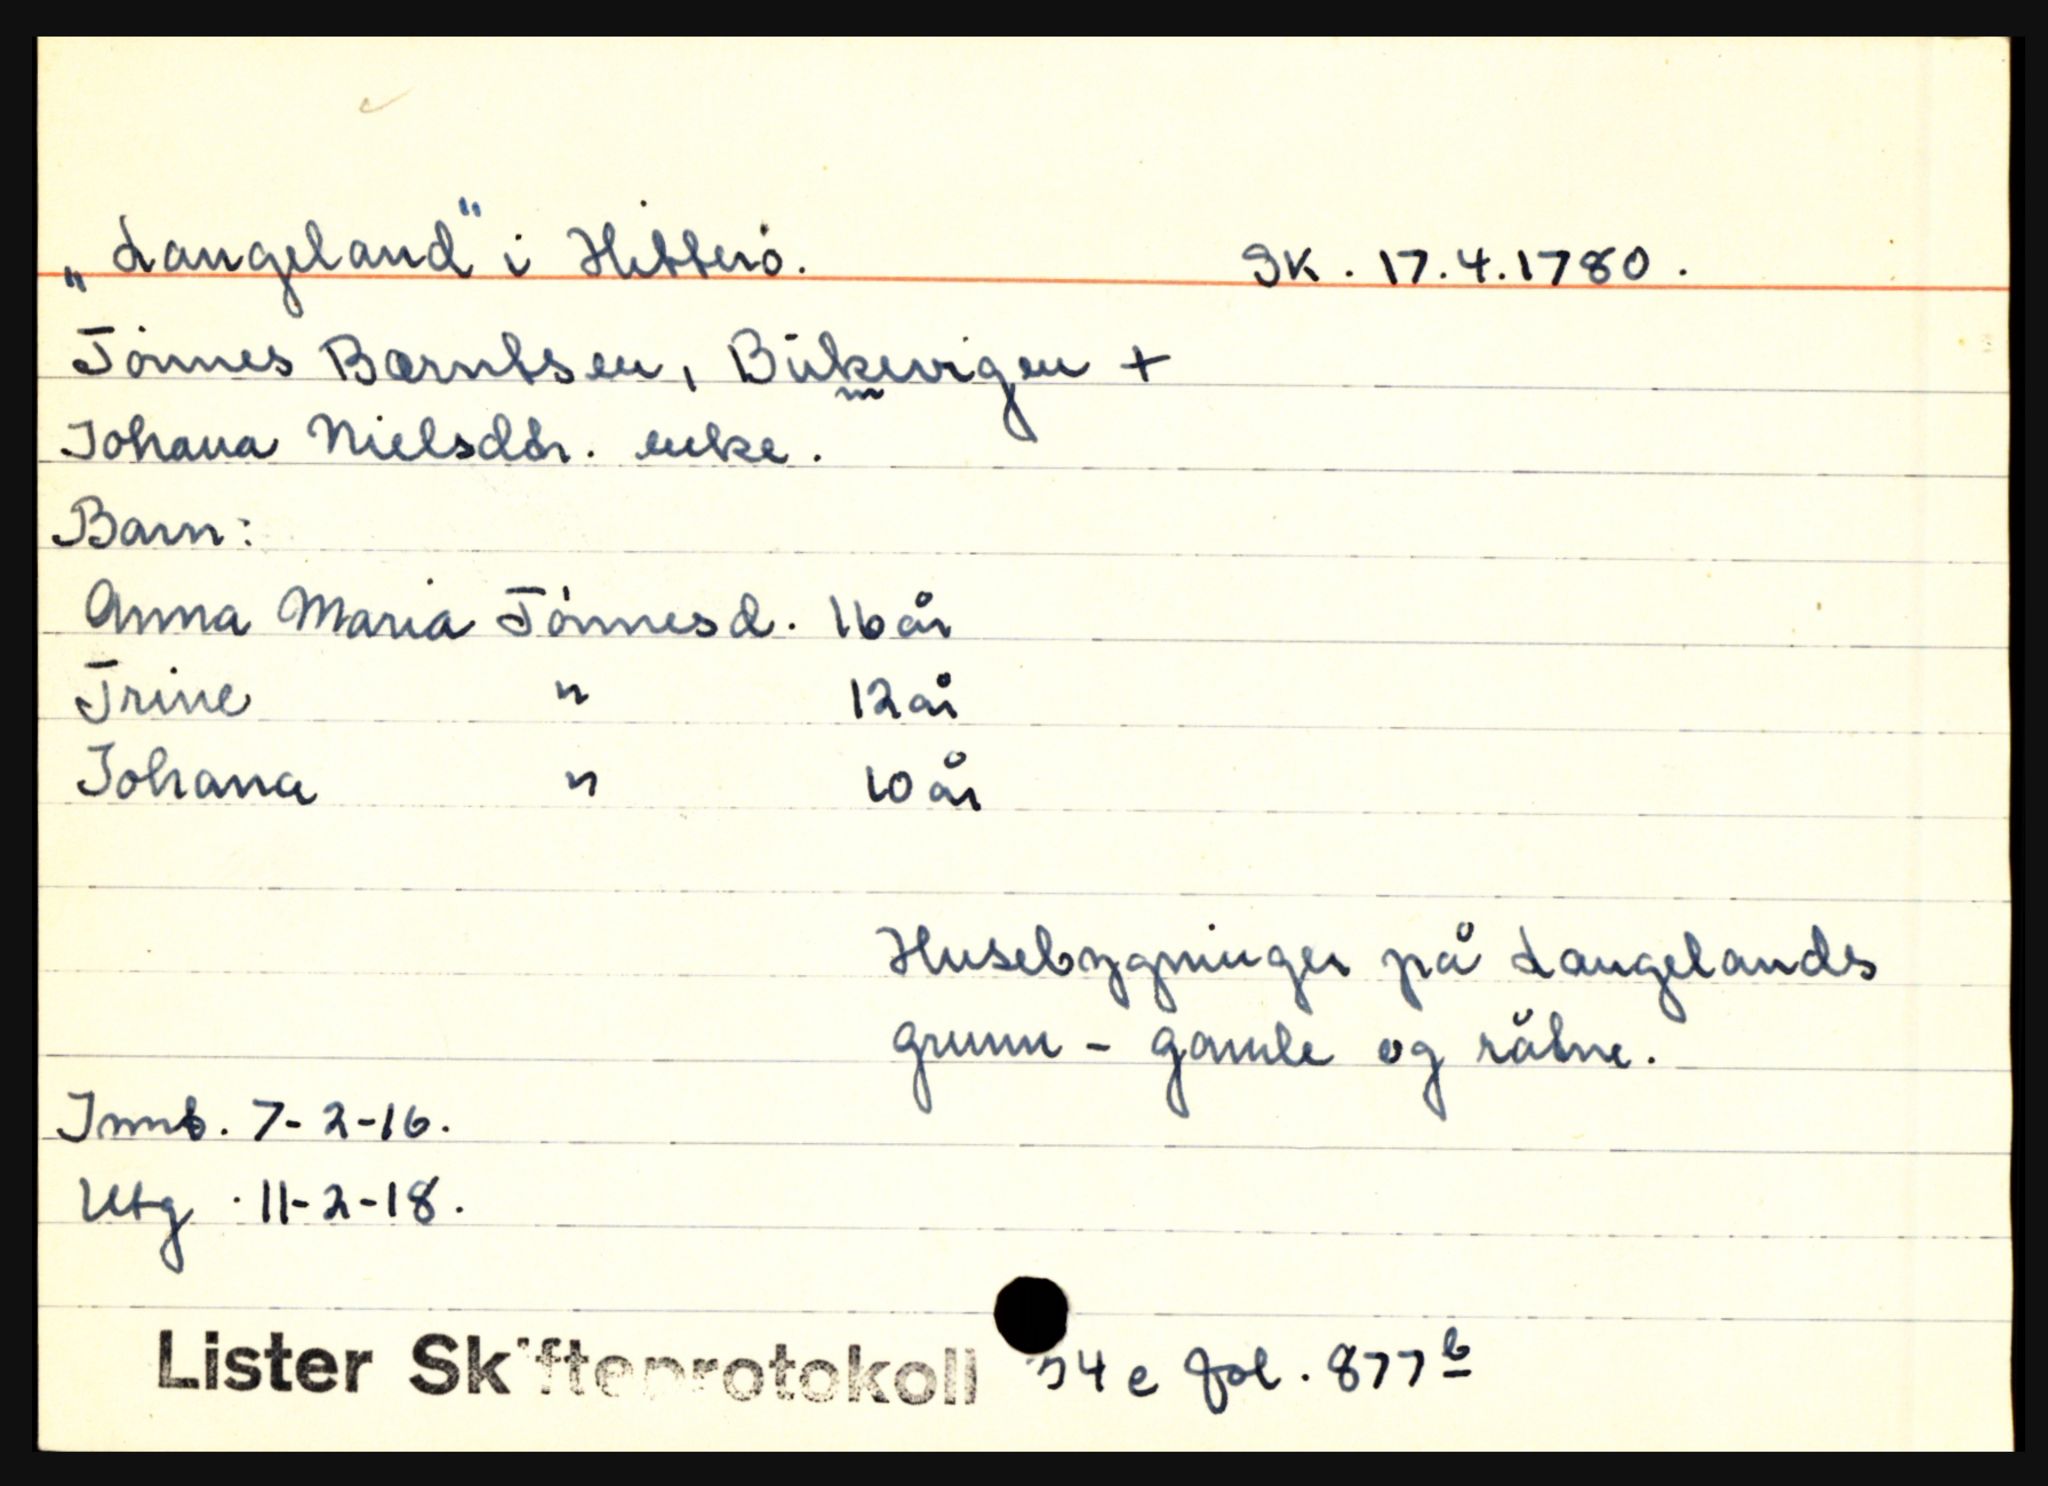 „Langeland" i Hitterö. SK. 17.4.1780.
Tönnes Bærntsen, Bükevigen +
Johana Nielsdtr. enke.
Barn:
Anna Maria Tönnesd. 16 år
Trine " 12 år
Johana " 10 år
Husebygninger på Langelands
grunn - gamle og råtne.
Innb. 7-2-16.
Utg. 11-2-18.
Lister Skifteprotokoll 4 e fol. 877 b